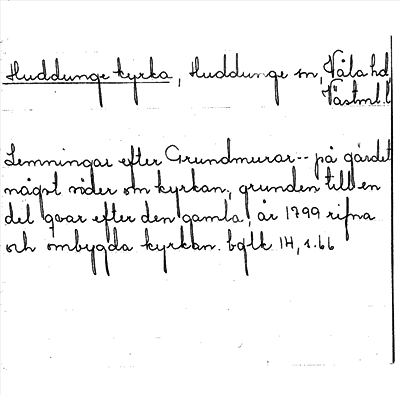 Huddunge kyrka, Huddunge sn, Våla hd
Västml. l
Lemningar efter Grundmurar -- på gärdet
något söder om kyrkan, grunden till en
del qvar efter den gamla, år 1799 rifna
och ombygda kyrkan. bqlk 14, s. 66